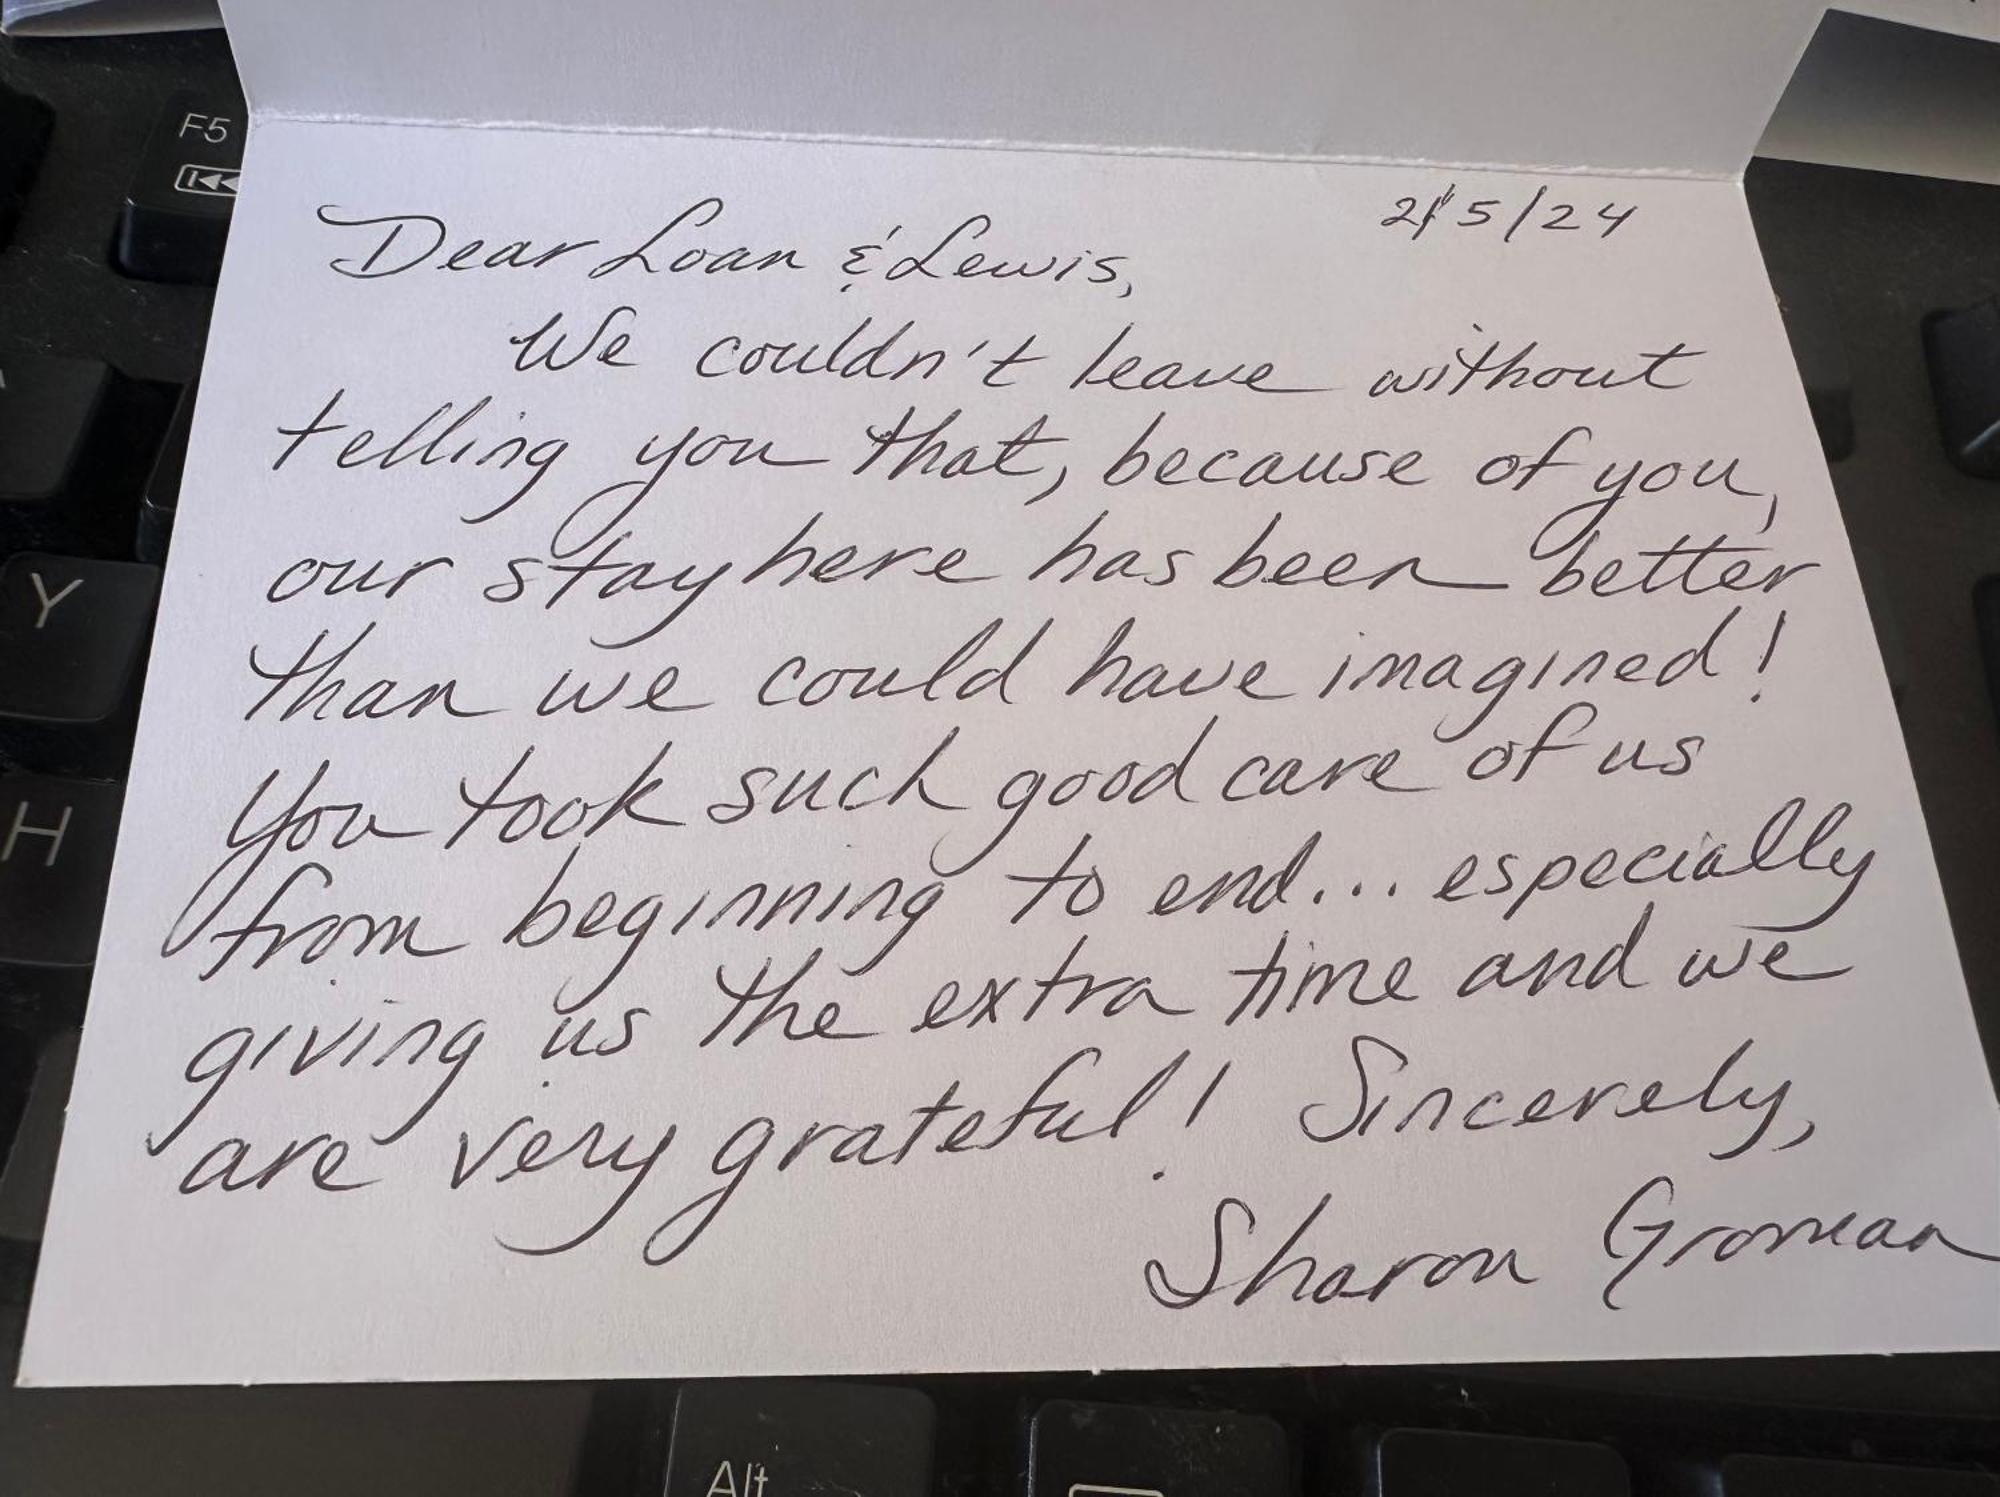 2/5/24
Dear Loan & Lewis,
We couldn't leave without
telling you that, because of you,
our stay here has been better
than we could have imagined!
You took such good care of us
from beginning to end... especially
giving us the extra time and we
are very grateful! Sincerely,
Sharon Groman
F5
Y
H
Alt